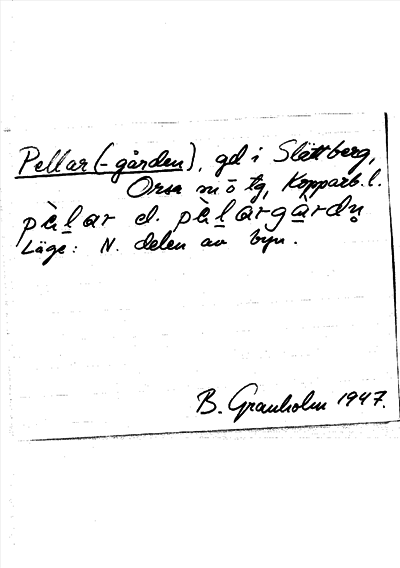 Pellar (-gården), gd i Slättberg,
Orsa sn o tg, Kopparb. l.
pὰl̲ar el. pὰl̲argὰ̲rdn̥
Läge: N. delen av byn.
B. Granholm 1947.